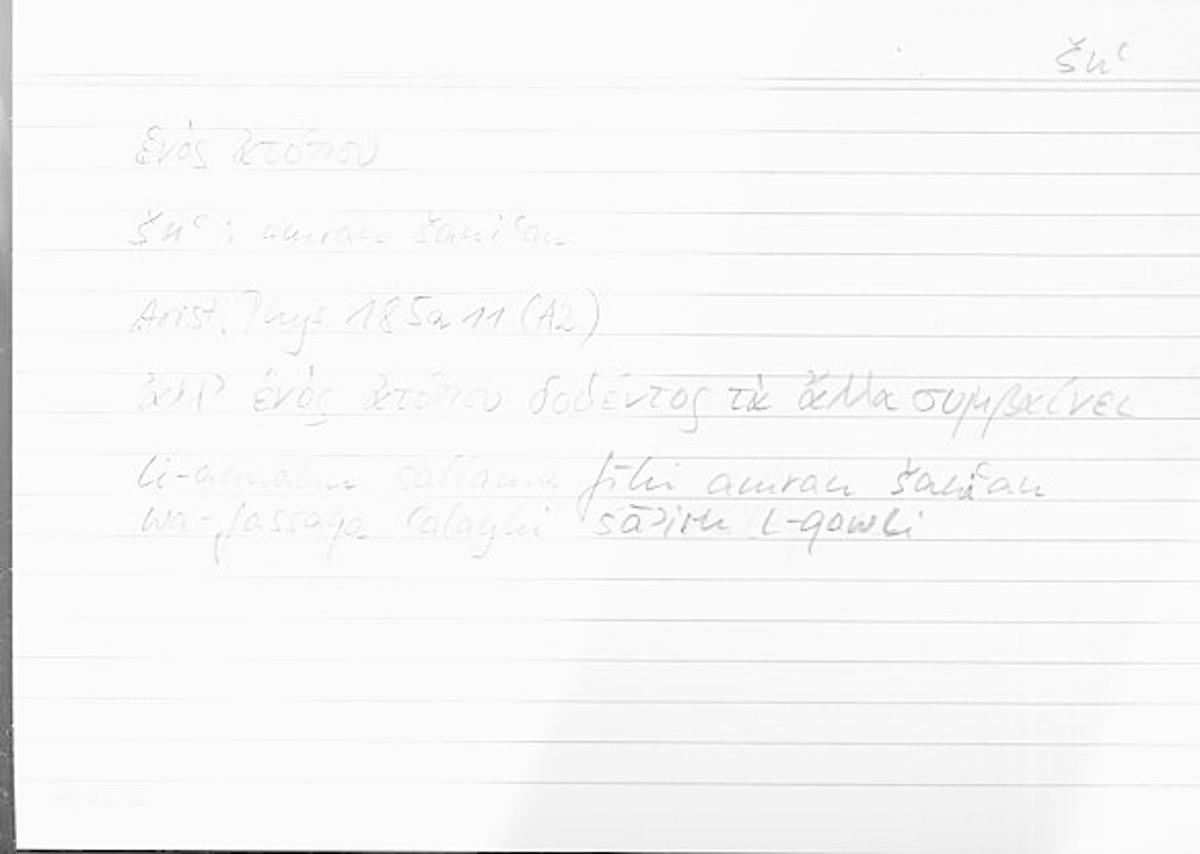 šnʿ
ἑνὸς ἀτόπου
šnʿ : amran šaniʿan
Arist. Phys 185a 11 (A2)
ἀλλ' ἑνὸς ἀτόπου δοθέντος τὰ ἄλλα συμβαίνει
li-annahū sallama fīhi amran šaniʿan
wa-fassaqa ʿalayhi sāʾira l-qawli